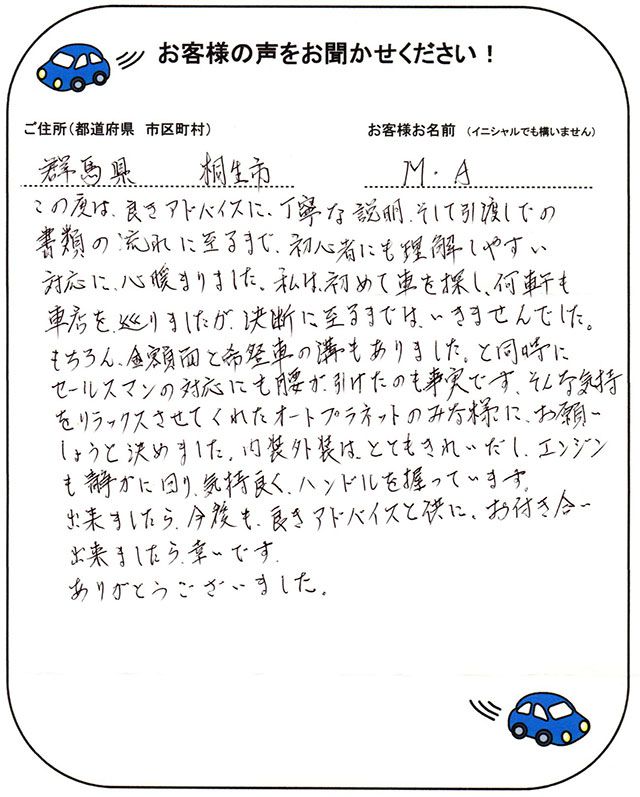 お客様の声をお聞かせください！
ご住所（都道府県　市区町村）　お客様お名前　（イニシャルでも構いません）
群馬県　桐生市　M・A
この度は、良きアドバイスに、丁寧な説明、そして引渡しでの
書類の流れに至るまで、初心者にも理解しやすい
対応に、心暖まりました。私は、初めて車を探し、何軒も
車店を、巡りましたが、決断に至るまでは、いきませんでした。
もちろん、金額面と希望車の溝もありました。と同時に
セールスマンの対応にも腰が、引けたのも事実です、そんな気持
をリラックスさせてくれたオートプラネットのみな様に、お願い
しようと決めました。内装外装は、とてもきれいだし、エンジン
も静かに回り、気持良く、ハンドルを握っています。
出来ましたら、今後も、良きアドバイスと供に、お付き合い
出来ましたら、幸いです。
ありがとうございました。